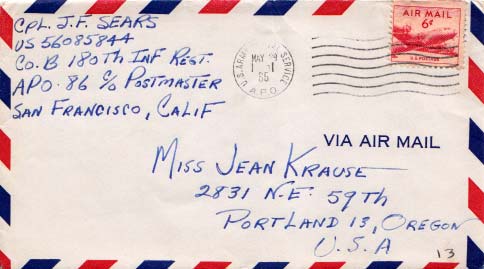 CPL. J.F. SEARS
US 56085844
Co. B 180TH INF REGT.
APO. 86 C/O POSTMASTER
SAN FRANCISCO, CALIF
U.S. ARMY SERVICE
MAY
1
A.P.O.
AIR MAIL
6¢
U.S. POSTAGE
VIA AIR MAIL
MISS JEAN KRAUSE
2831 N.E. 59TH
PORTLAND 13, OREGON
U.S.A
13